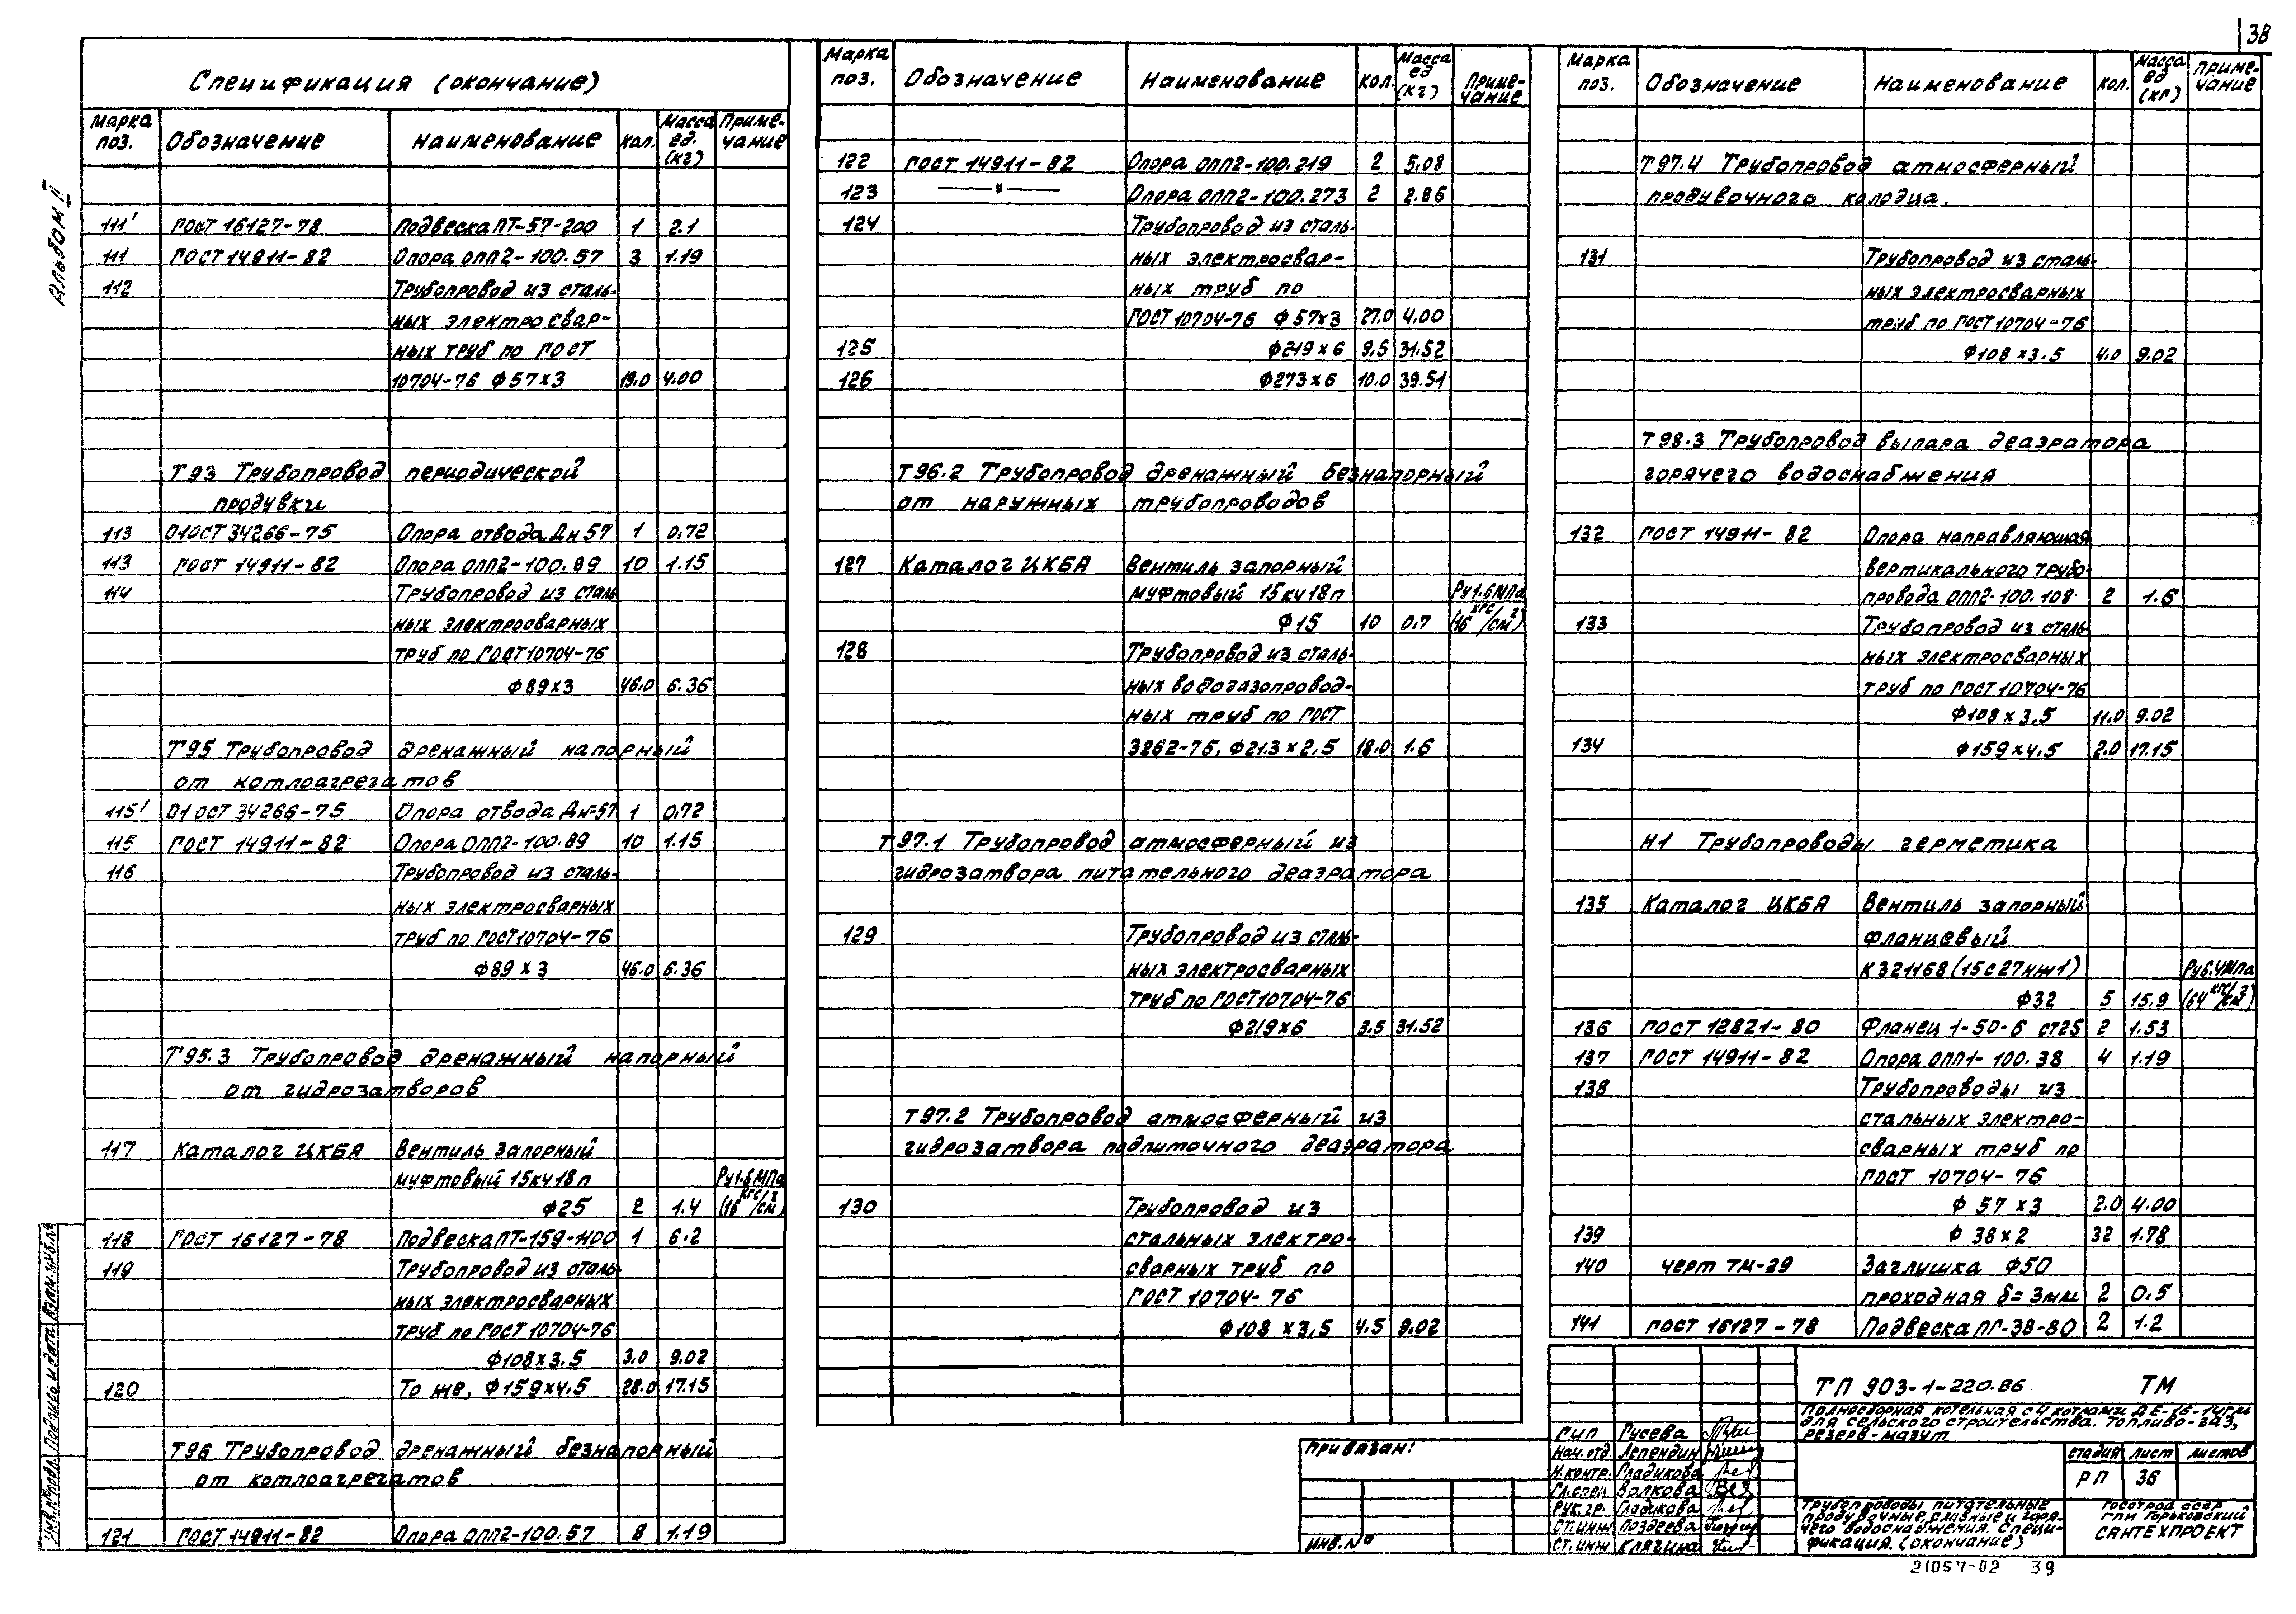 38
Альбом II
Спецификация (окончание)
Марка поз. Обозначение Наименование Кол. Масса ед. (кг) Примечание
111' ГОСТ 16127-78 Подвеска ПТ-57-200 1 2.1
111 ГОСТ 14911-82 Опора ОПП2-100.57 3 1.19
112 Трубопровод из сталь-
ных электросвар-
ных труб по ГОСТ
10704-76 Ф57х3 19.0 4.00
Т93 Трубопровод периодической
продувки
113 01ОСТ 34266-75 Опора отвода Дн 57 1 0.72
113 ГОСТ 14911-82 Опора ОПП2-100.89 10 1.15
114 Трубопровод из сталь
ных электросварных
труб по ГОСТ 10704-76
Ф89х3 46.0 6.36
Т95 Трубопровод дренажный напорный
от котлоагрегатов
115' 01 ОСТ 34266-75 Опора отвода Дн-57 1 0.72
115 ГОСТ 14911-82 Опора ОПП2-100.89 10 1.15
116 Трубопровод из сталь-
ных электросварных
труб по ГОСТ 10704-76
Ф89 х 3 46.0 6.36
Т95.3 Трубопровод дренажный напорный
от гидрозатворов
117 Каталог ЦКБА Вентиль запорный
муфтовый 15кч18п Ру1.6МПа
Ф25 2 1.4 (16 кгс/см²)
118 ГОСТ 16127-78 Подвеска ПТ-159-1100 1 6.2
119 Трубопровод из сталь-
ных электросварных
труб по ГОСТ 10704-76
Ф108х3.5 3.0 9.02
120 То же, Ф159х4.5 28.0 17.15
Т96 Трубопровод дренажный безнапорный
от котлоагрегатов
121 ГОСТ 14911-82 Опора ОПП2-100.57 8 1.19
Марка поз. Обозначение Наименование Кол. Масса ед (кг) Примечание
122 ГОСТ 14911-82 Опора ОПП2-100.219 2 5.08
123 —"— Опора ОПП2-100.273 2 2.86
124 Трубопровод из сталь-
ных электросвар-
ных труб по
ГОСТ 10704-76 Ф57х3 27.0 4.00
125 Ф219х6 9.5 31.52
126 Ф273х6 10.0 39.51
Т96.2 Трубопровод дренажный безнапорный
от наружных трубопроводов
127 Каталог ЦКБА Вентиль запорный
муфтовый 15кч18п Ру1.6МПа
Ф15 10 0.7 (16 кгс/см²)
128 Трубопровод из сталь-
ных водогазопровод-
ных труб по ГОСТ
3262-75, Ф21.3х2.5 18.0 1.6
Т97.1 Трубопровод атмосферный из
гидрозатвора питательного деаэратора
129 Трубопровод из сталь-
ных электросварных
труб по ГОСТ 10704-76
Ф219х6 3.5 31.52
Т97.2 Трубопровод атмосферный из
гидрозатвора подпиточного деаэратора
130 Трубопровод из
стальных электро-
сварных труб по
ГОСТ 10704-76
Ф108 х3,5 4.5 9.02
Марка поз. Обозначение Наименование Кол. Масса ед (кг) Примечание
Т97.4 Трубопровод атмосферный
продувочного колодца.
131 Трубопровод из сталь-
ных электросварных
труб по ГОСТ 10704-76
Ф108 х3.5 4.0 9.02
Т98.3 Трубопровод выпара деаэратора
горячего водоснабжения
132 ГОСТ 14911-82 Опора направляющая
вертикального трубо-
провода ОПП2-100.108 2 1.6
133 Трубопровод из сталь
ных электросварных
труб по ГОСТ 10704-76
Ф108 х3.5 11.0 9.02
134 Ф159х4.5 2.0 17.15
Н1 Трубопроводы герметика
135 Каталог ЦКБА Вентиль запорный
фланцевый
КЗ21168 (15с27нж1) Ру6.4МПа
Ф32 5 15.9 (64 кгс/см²)
136 ГОСТ 12821-80 Фланец 1-50-6 ст25 2 1.53
137 ГОСТ 14911-82 Опора ОПП1-100.38 4 1.19
138 Трубопроводы из
стальных электро-
сварных труб по
ГОСТ 10704-76
Ф 57 х3 2.0 4.00
139 Ф 38х2 32 1.78
140 черт ТМ-29 Заглушка Ф50
проходная δ=3мм 2 0.5
141 ГОСТ 16127-78 Подвеска ПГ-38-80 2 1.2
ТП 903-1-220.86 ТМ
Полносборная котельная с 4 котлами ДЕ-16-14ГМ
для сельского строительства. Топливо-газ,
резерв-мазут
ГИП Гусева
Нач.отд. Лепендин
Н.контр. Гладикова
Гл.спец Волкова
Рук.гр. Гладикова
Ст.инж Поздеева
Ст.инж Клягина
стадия лист листов
РП 36
Трубопроводы питательные
продувочные, сливные и горя-
чего водоснабжения. Специ-
фикация. (окончание)
Госстрой СССР
ГПИ Горьковский
САНТЕХПРОЕКТ
Привязан:
Инв.№
Инв.№подл. Подпись и дата Взам.инв.№
21057-02 39